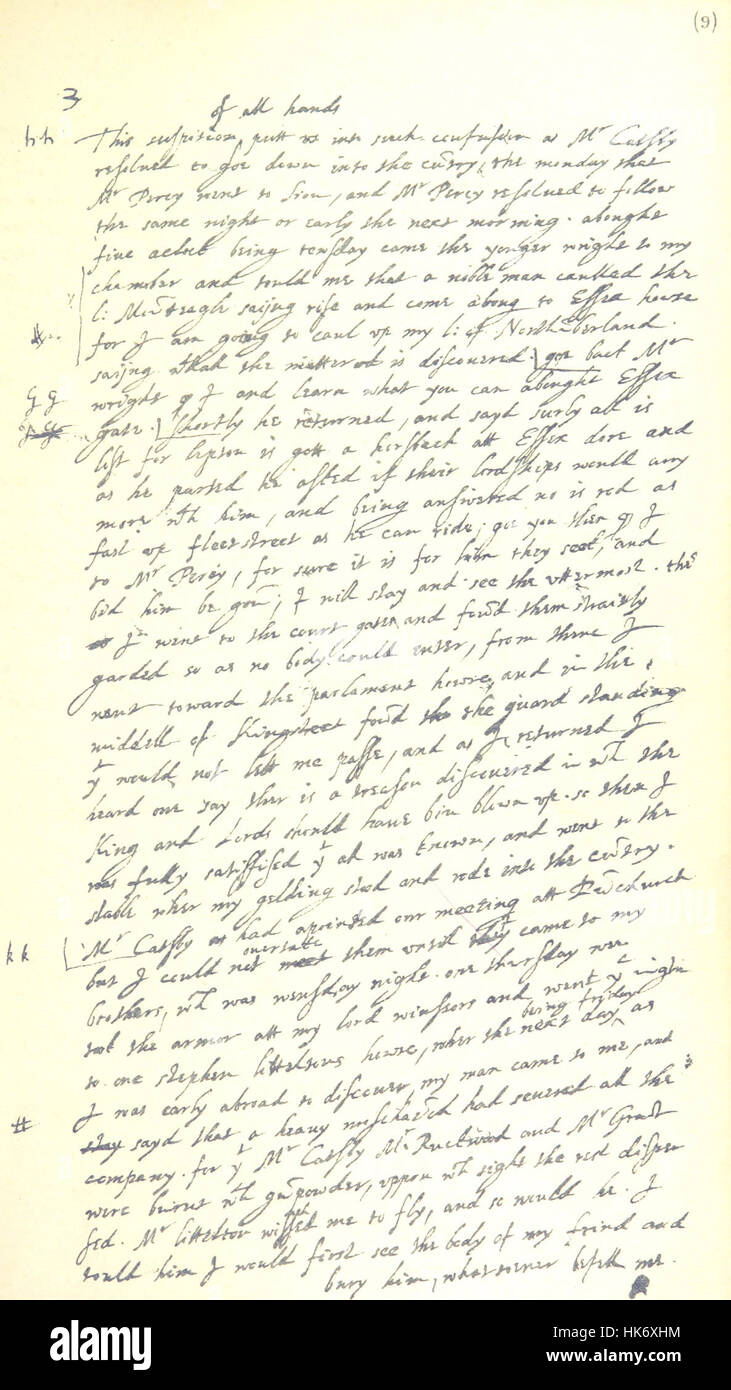 (9)
3
of all hands
hh This suspision, putt us into such confusion as Mr Catsby
resolued to goe down into the cūtry, the monday that
Mr Percy went to Sion, and Mr Percy resolued to follow
the same night or early the next morning. abought
fiue aclock being teusday came the yonger wright to my
chamber and tould me that a nobleman caulled the
l: Mōteagle saijng rise and come along to Essex house
for I am going to caul vp my l: of Northūberland.
saijng wthall the matter is discouered goe back Mr
GG wright q I and learn what you can abought Essex
gate. shortly he returned, and sayd surly all is
lost for lepton is gott a horsback att Essex dore and
as he parted he asked if their lordships would any
more wth him, and being answered no is rod as
fast vp fleetstreet as he can ride, goe you then q I
to Mr Percy, for sure it is for him they seek, and
bid him be gon, I will stay and see the vttermost. then
I went to the court gates, and foūd them straitly
garded so as no body could enter, from thence I
went toward the parlament howse, and in the
middell of Kingstreet foūd the guard standing
yt would not lett me passe, and as I returned I
heard one say ther is a treason discouered in wch the
King and Lords should haue bin blown vp. so then I
was fully satisfised yt all was known, and went to the
stable wher my gelding stood and rode into the cūtry.
kk Mr Catsby had apointed our meeting att Dūchurch
ouertake
but I could not them vntil they came to my
brothers, wch was wensday night. one thursday we
took the armor att my lord winsors and went yt night
to one stephen littletons howse, wher the next day
being friday
as
I was early abroad to discouer, my man came to me, and
sayd that a heavy mischance had seuered all the
company. for yt Mr Catsby Mr Ruckwood and Mr Grant
were burnt wth gūpowder, vppon wch sight the rest disper
sed. Mr littleton wisshed me to fly, and so would he. I
tould him I would first see the body of my frind and
bury him, whatsoeuer befell me.
alamy
Image ID: HK6XHM
www.alamy.com